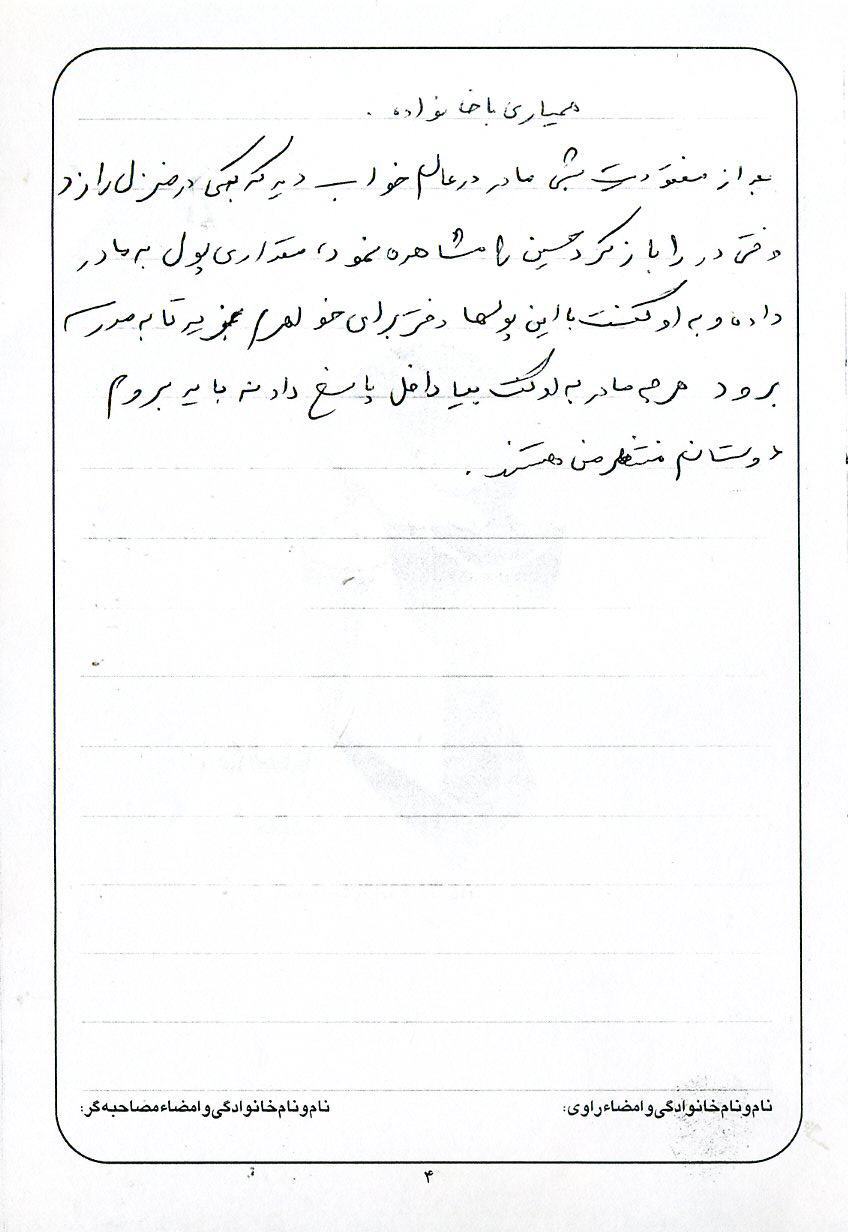 همیاری با خانواده.
بعد از مفقودیت شبی مادر در عالم خواب دید که یکی در منزل را زد
وقتی در را باز کرد حسین را مشاهده نمود، مقداری پول به مادر
داده و به او گفت با این پولها دفتر برای خواهرم بخرید تا به مدرسه
برود هرچه مادر به او گفت بیا داخل پاسخ داد نه باید بروم
دوستانم منتظر من هستند.
نام و نام خانوادگی و امضاء راوی:
نام و نام خانوادگی و امضاء مصاحبه گر:
۴